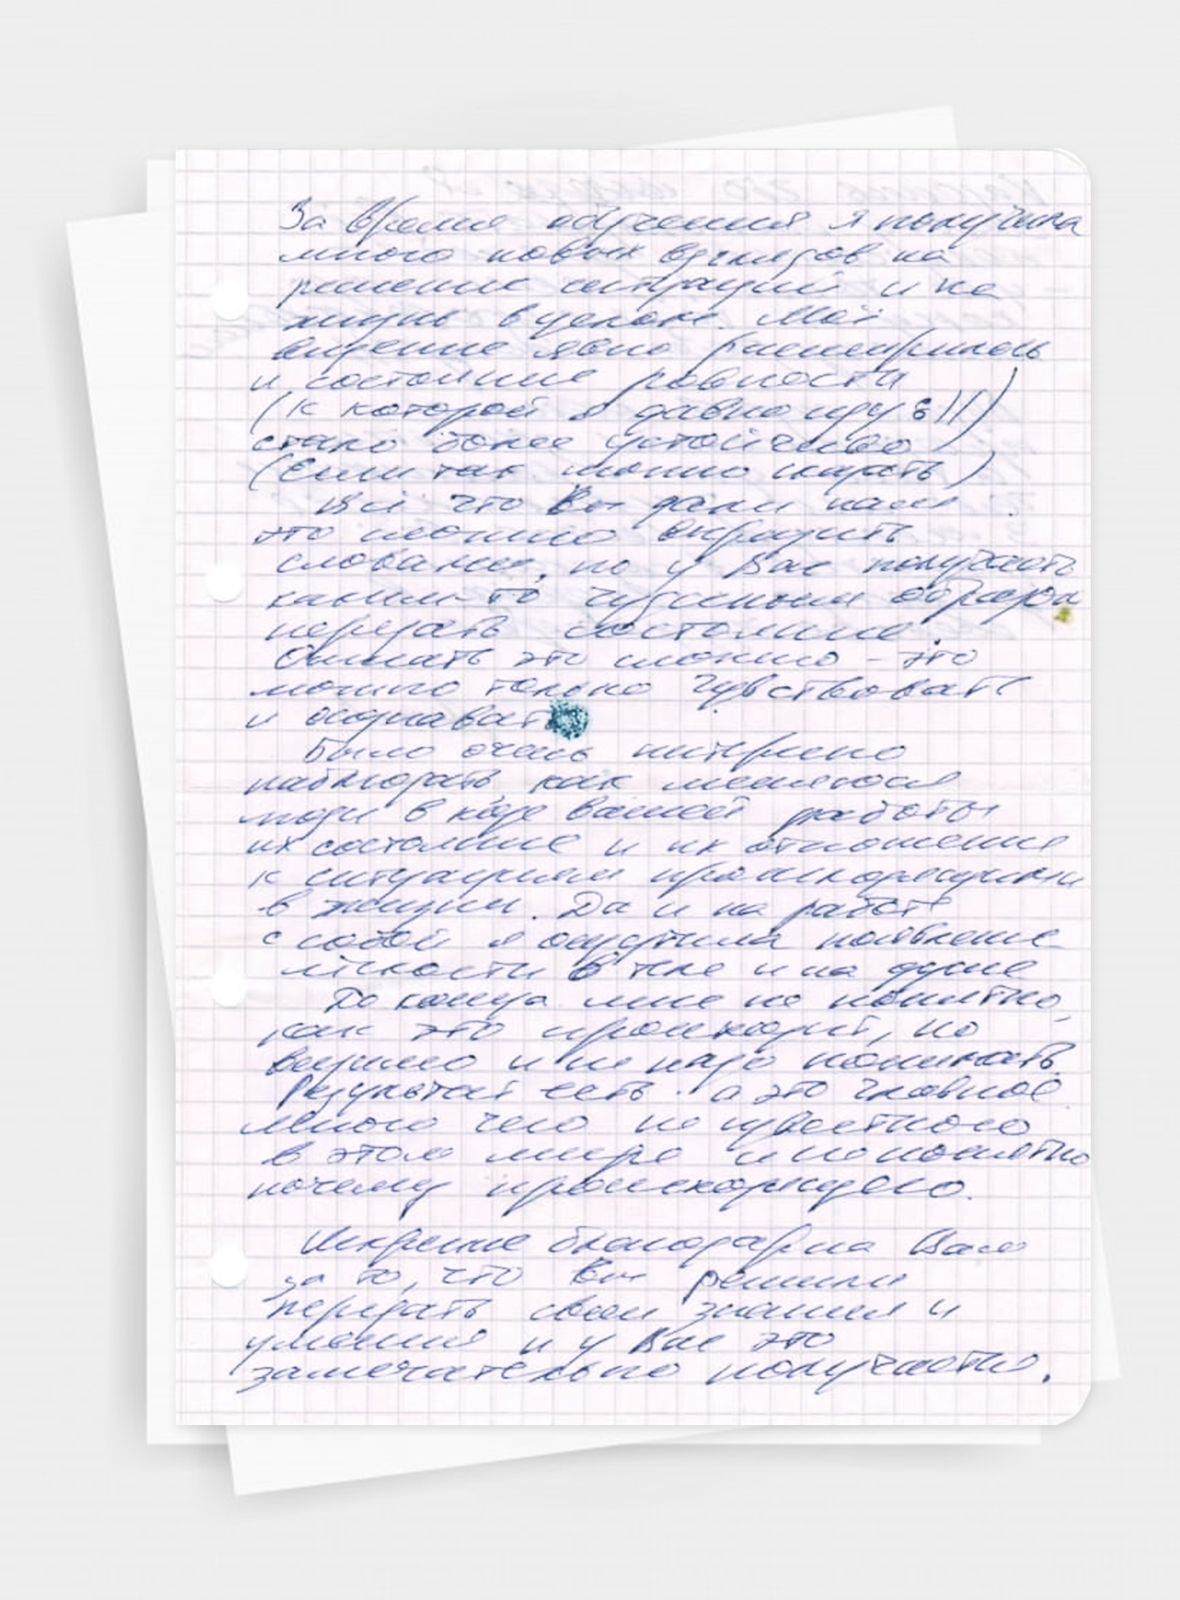 За время обучения я получила
много новых взглядов на
решение ситуаций и на
жизнь в целом. Моё
видение явно расширилось
и состояние ровности
(к которой я давно иду
стало более устойчиво
(Если так можно сказать)
Всё что Вы дали нам
это можно выразить
словами, но у Вас получается
каким-то чудесным образом
передать состояние.
Описать это сложно - это
можно только чувствовать
и осознавать
Было очень интересно
наблюдать как меняются
люди в ходе вашей работы
их состояние и их отношение
к ситуациям происходящими
в жизни. Да и на работе
с собой я ощутила появление
лёгкости в теле и на душе
До конца мне не понятно,
как это происходит, но
видимо и не надо понимать
Результат есть. а это главное
Много чего не известного
в этом мире и не понятно
почему происходящего.
Искренне благодарна Вам
за то, что Вы решили
передать свои знания и
умения и у Вас это
замечательно получается.